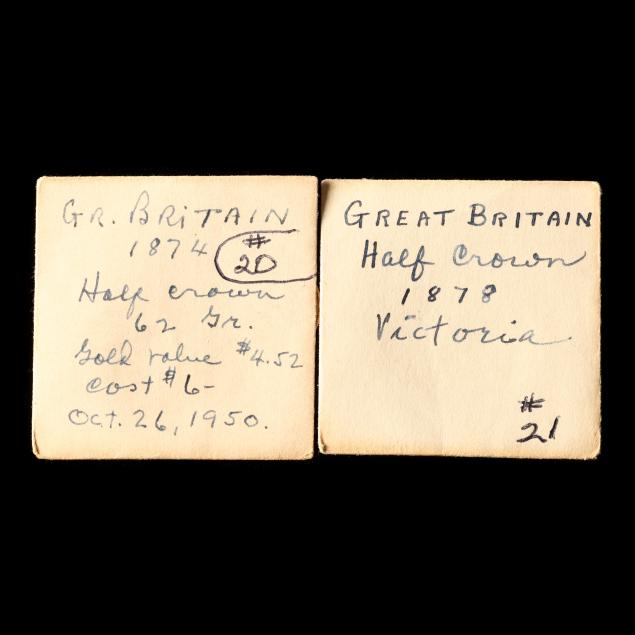 GR. BRITAIN
1874
# 20
Half crown
62 Gr.
Gold value $4.52
cost $6-
Oct. 26, 1950.
GREAT BRITAIN
Half Crown
1878
Victoria
#
21